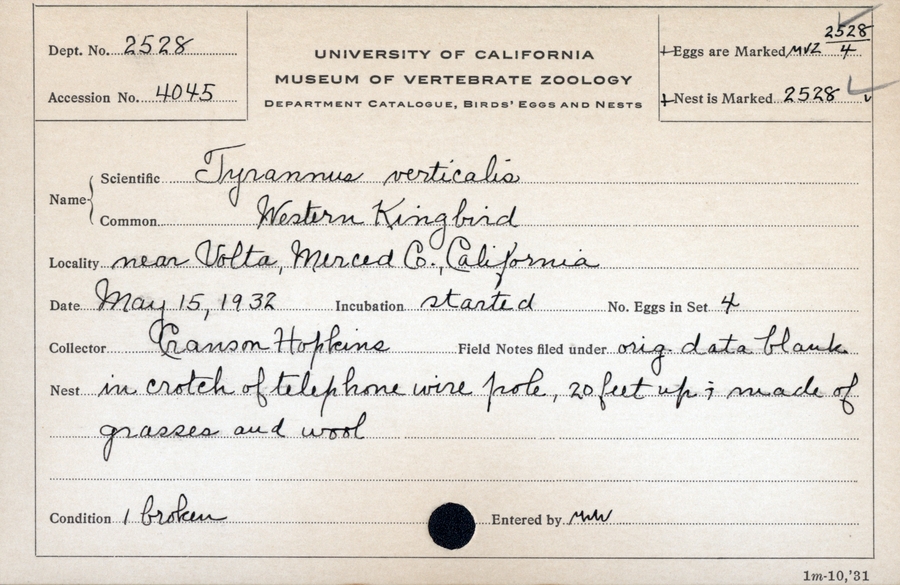 Dept. No. 2528
Accession No. 4045
UNIVERSITY OF CALIFORNIA
MUSEUM OF VERTEBRATE ZOOLOGY
DEPARTMENT CATALOGUE, BIRDS' EGGS AND NESTS
Eggs are Marked MVZ 2528/4
Nest is Marked 2528
Name
Scientific Tyrannus verticalis
Common Western Kingbird
Locality near Volta, Merced Co., California
Date May 15, 1932 Incubation started No. Eggs in Set 4
Collector Hopkins Field Notes filed under orig. data blank
Nest in crotch of telephone wire pole, 20 feet up; made of
grasses and wool
Condition 1 broken Entered by
1m-10,'31